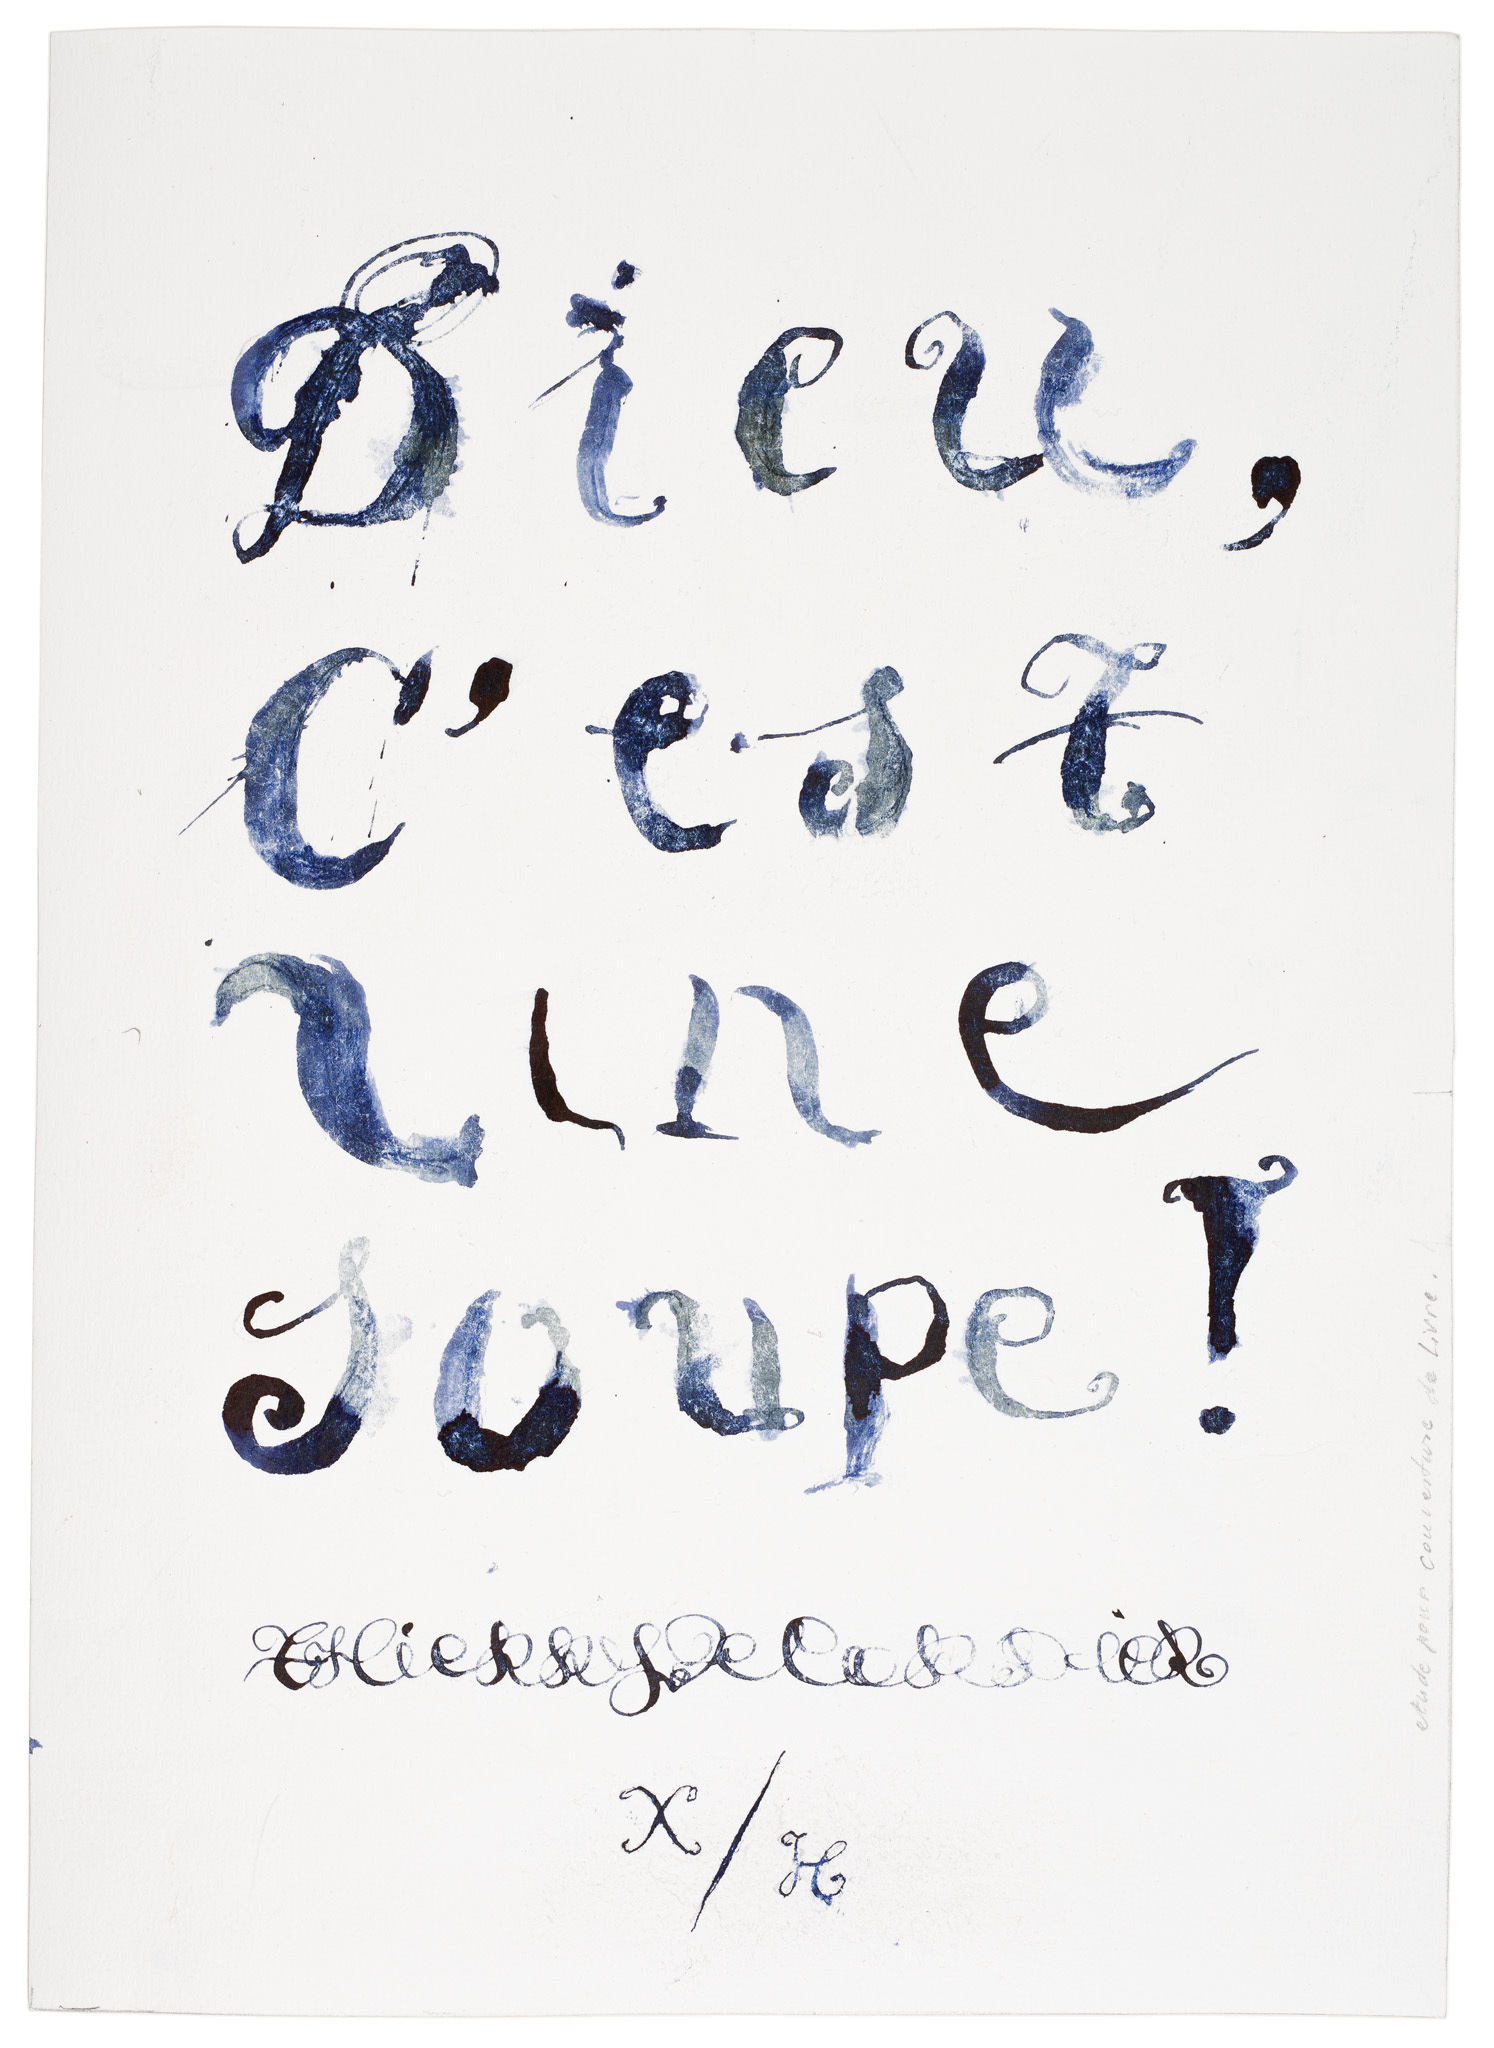 Dieu,
C'est
une
soupe!
X/H
etude pour couverture de livre.